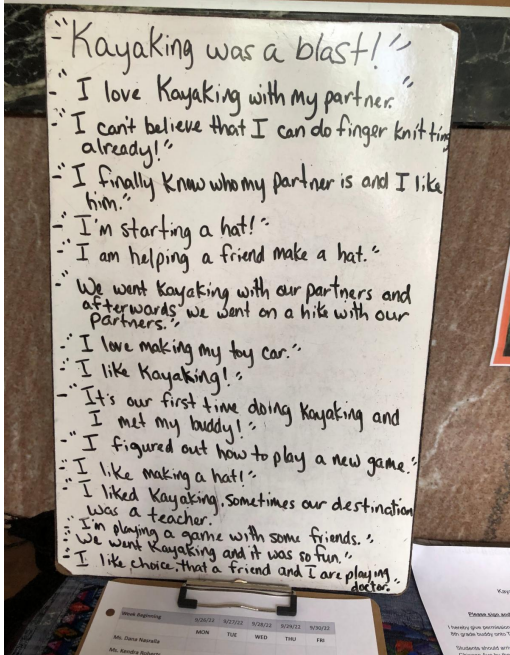 - "Kayaking was a blast!"
- "I love Kayaking with my partner."
- "I can't believe that I can do finger knitting
already!"
- "I finally know who my partner is and I like
him."
- "I'm starting a hat!"
- "I am helping a friend make a hat."
- "We went Kayaking with our partners and
afterwards we went on a hike with our
partners."
- "I love making my toy car."
- "I like Kayaking!"
- "It's our first time doing Kayaking and
I met my buddy!"
- "I figured out how to play a new game."
- "I like making a hat!"
- "I liked Kayaking. Sometimes our destination
was a teacher."
- "I'm playing a game with some friends."
- "We went Kayaking and it was so fun."
- "I like choice that a friend and I are playing
doctor."
Week Beginning 9/26/22 9/27/22 9/28/22 9/29/22 9/30/22
MON TUE WED THU FRI
Ms. Dana Nasralla
Ms. Kendra Roberts
Kay
Please sign and
I hereby give permission
5th grade buddy onto T
Students should arri